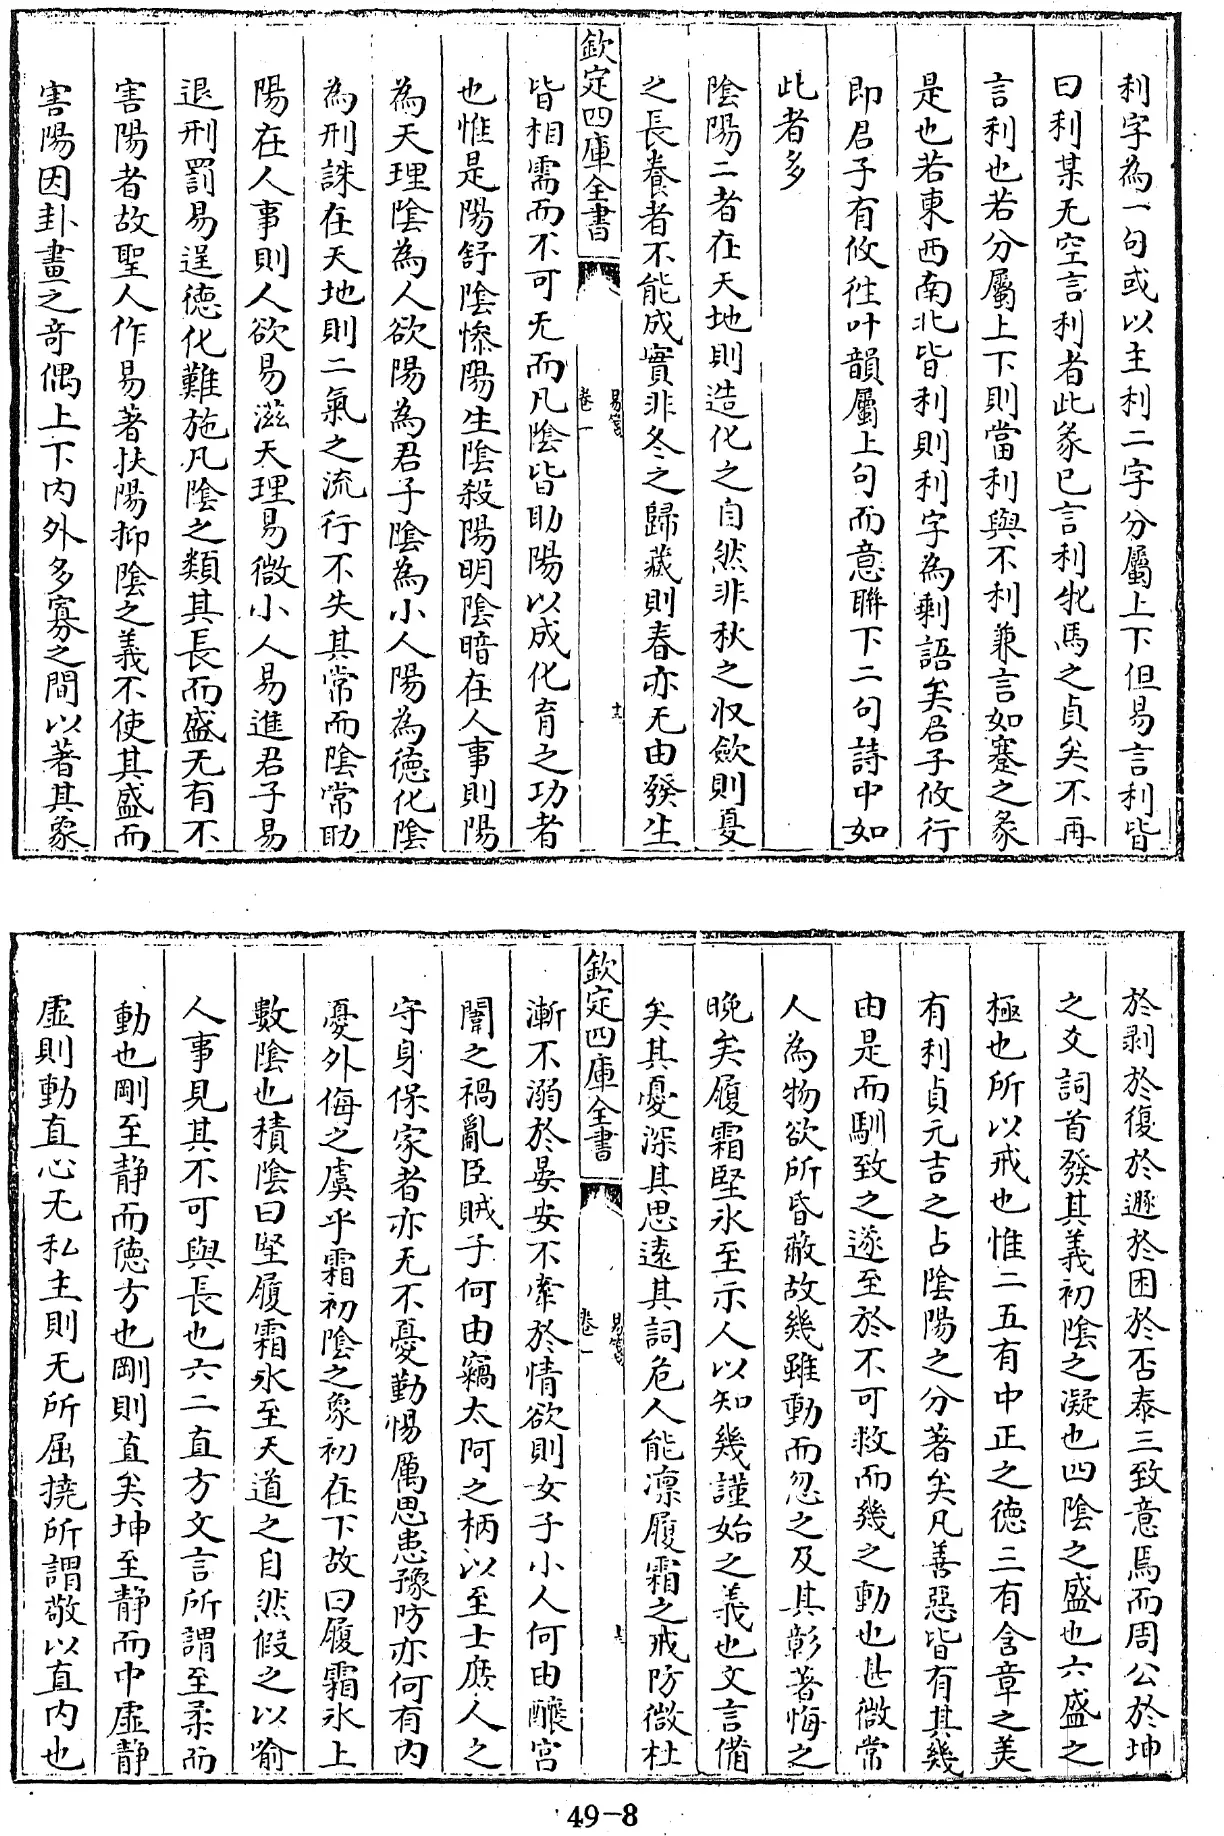 利字為一句或以主利二字分屬上下但易言利皆
曰利某无空言利者此彖已言利牝馬之貞矣不再
言利也若分屬上下則當利與不利兼言如蹇之彖
是也若東西南北皆利則利字為剩語矣君子攸行
即君子有攸徃叶韻屬上句而意聯下二句詩中如
此者多
陰陽二者在天地則造化之自然非秋之收斂則夏
之長養者不能成實非冬之歸藏則春亦无由發生
欽定四庫全書
易箋
卷一
皆相需而不可无而凡陰皆助陽以成化育之功者
也惟是陽舒陰慘陽生陰殺陽明陰暗在人事則陽
為天理陰為人欲陽為君子陰為小人陽為德化陰
為刑誅在天地則二氣之流行不失其常而陰常助
陽在人事則人欲易滋天理易微小人易進君子易
退刑罰易逞德化難施凡陰之類其長而盛无有不
害陽者故聖人作易著扶陽抑陰之義不使其盛而
害陽因卦畫之奇偶上下内外多寡之間以著其象
於剥於復於遯於困於否泰三致意焉而周公於坤
之爻詞首發其義初陰之凝也四陰之盛也六盛之
極也所以戒也惟二五有中正之德三有含章之美
有利貞元吉之占陰陽之分著矣凡善惡皆有其幾
由是而馴致之遂至於不可救而幾之動也甚微常
人為物欲所昏蔽故幾雖動而忽之及其彰著悔之
晚矣履霜堅氷至示人以知幾謹始之義也文言備
矣其憂深其思逺其詞危人能凛履霜之戒防微杜
欽定四庫全書
易箋
卷一
漸不溺於晏安不牽於情欲則女子小人何由釀宫
闈之禍亂臣賊子何由竊太阿之柄以至士庶人之
守身保家者亦无不憂勤惕厲思患豫防亦何有内
憂外侮之虞乎霜初陰之象初在下故曰履霜氷上
數陰也積陰曰堅履霜氷至天道之自然假之以喻
人事見其不可與長也六二直方文言所謂至柔而
動也剛至静而德方也剛則直矣坤至静而中虛静
虛則動直心无私主則无所屈撓所謂敬以直内也
49-8